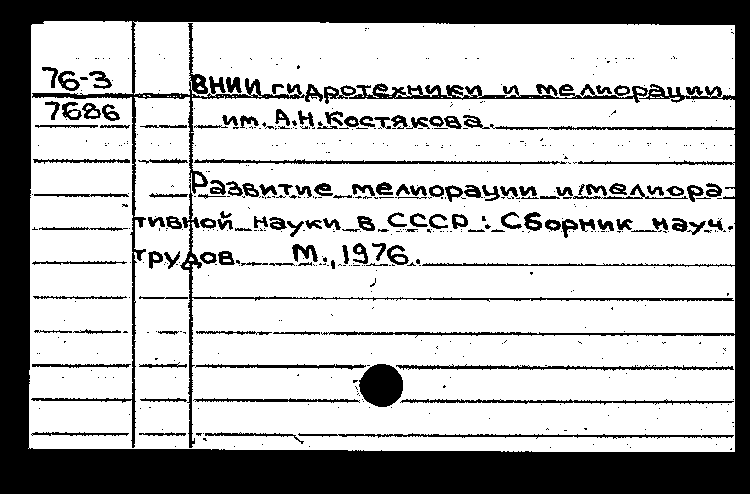 76-3 ВНИИ гидротехники и мелиорации
7686 им. А.Н.Костякова.
Развитие мелиорации и мелиора-
тивной науки в СССР : Сборник науч.
трудов. М.,1976.